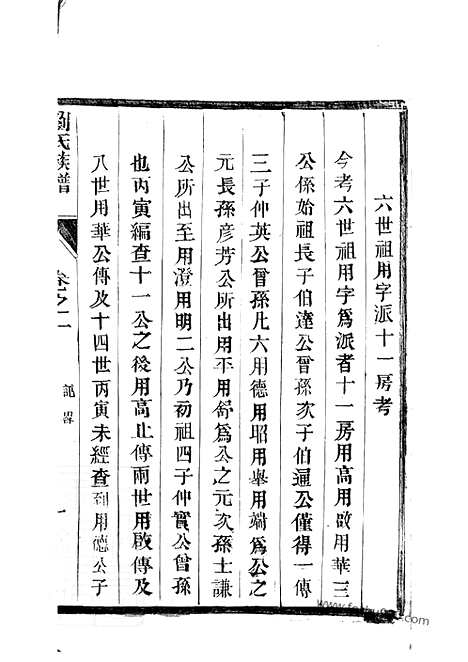 六世祖用字派十一房考
今考六世祖用字爲派者十一房用高用啟用華三
公係始祖長子伯達公曾孫次子伯通公僅得一傳
三子仲英公曾孫凡六用德用昭用舉用端爲公之
元長孫彥芳公所出用平用舒爲公之元次孫士謙
公所出至用澄用明二公乃初祖四子仲實公曾孫
也丙寅編查十一公之後用高止傳兩世用啟傳及
八世用華公傳及十四世丙寅未經查到用德公子
劉氏族譜
卷之二
記畧
一